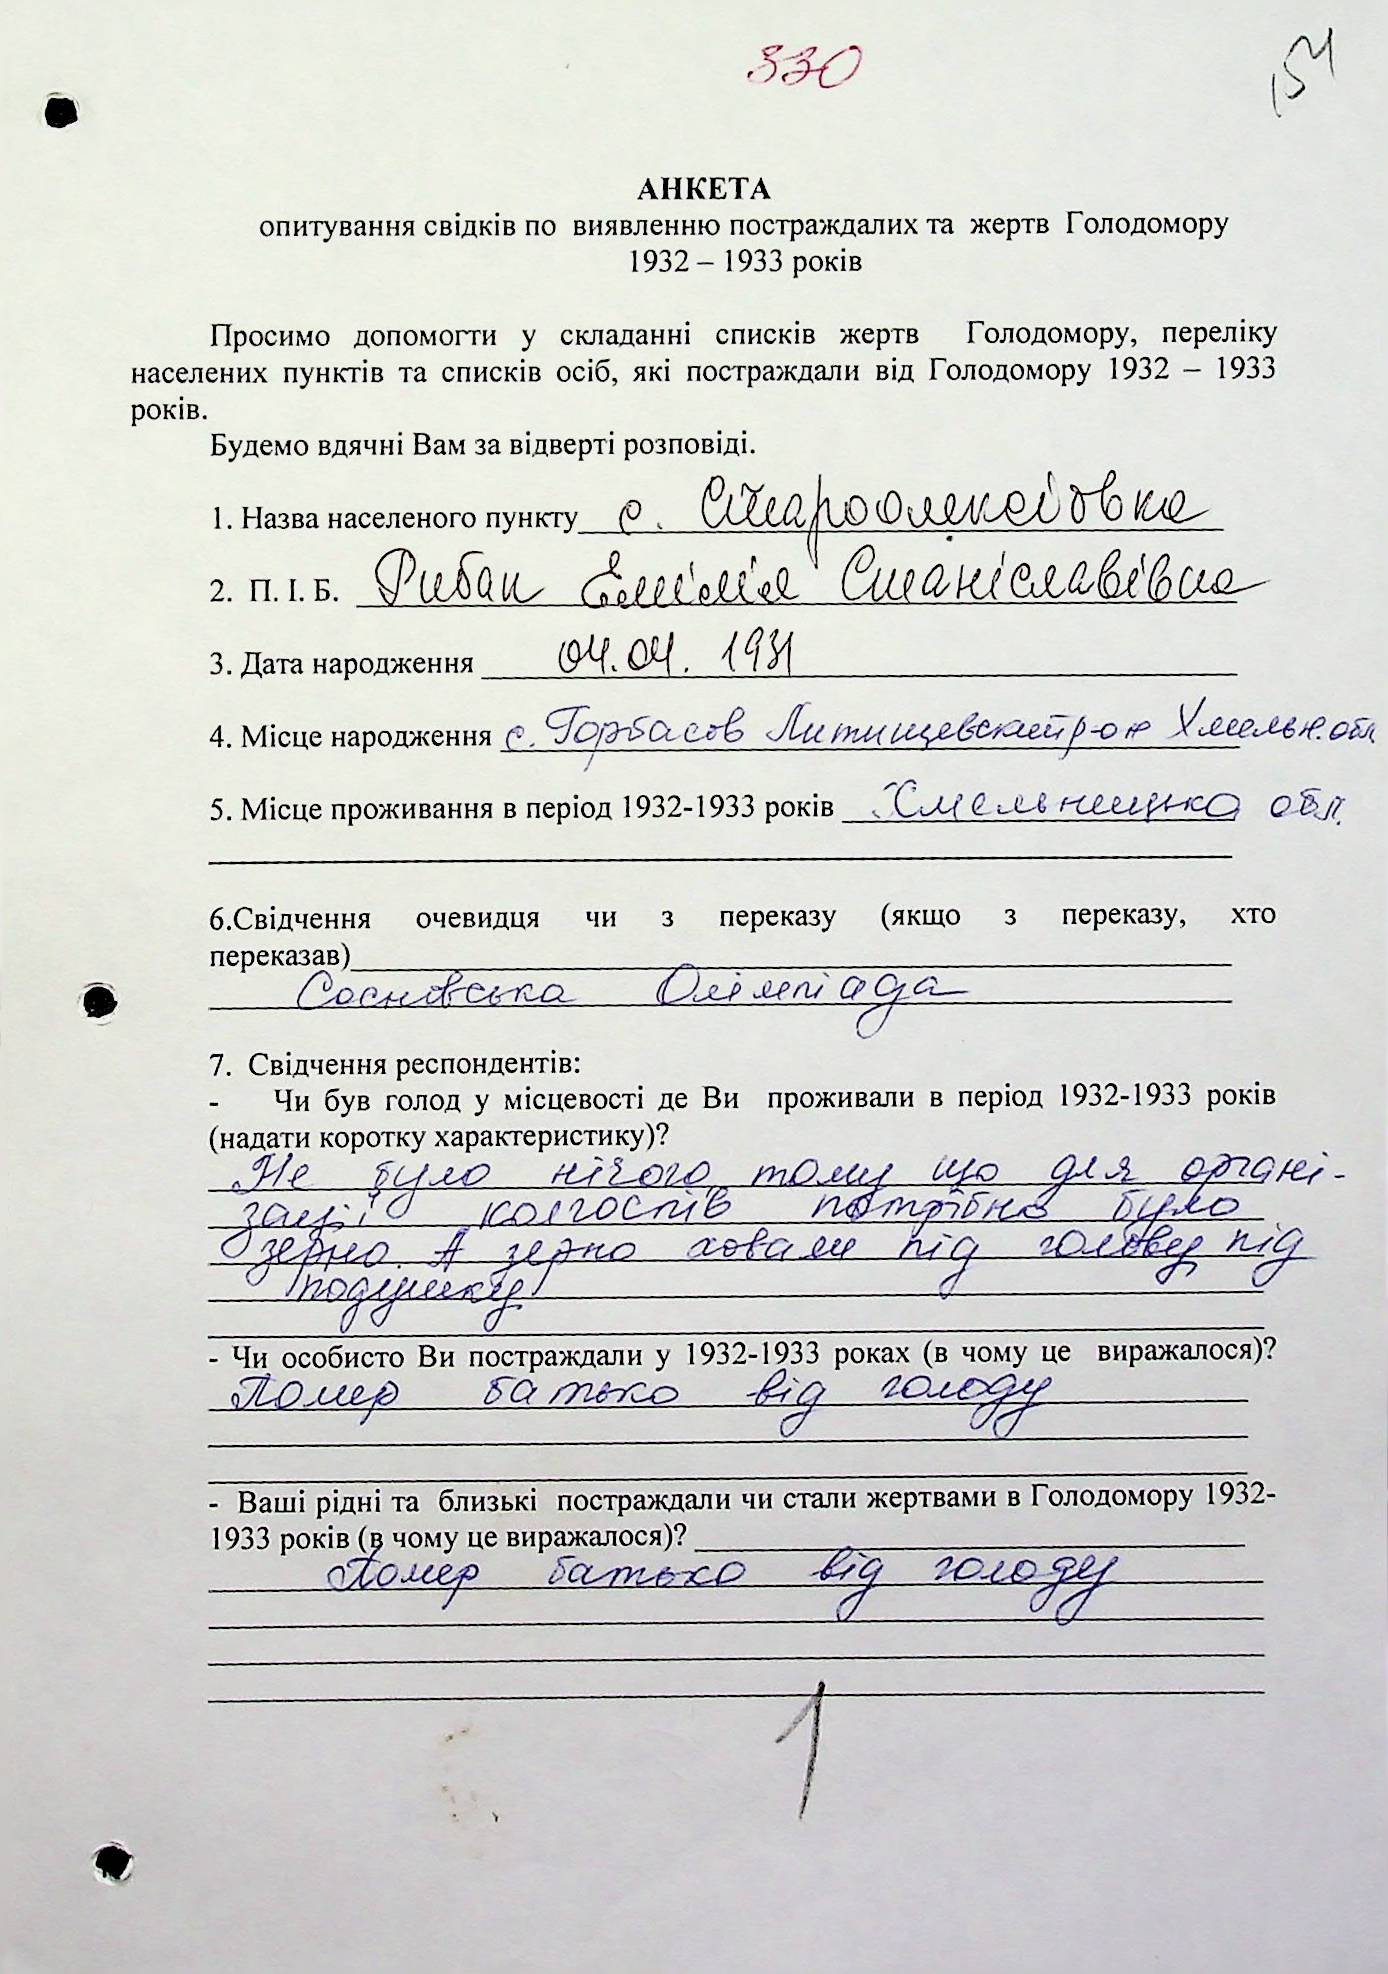 330
154
АНКЕТА
опитування свідків по виявленню постраждалих та жертв Голодомору
1932 – 1933 років
Просимо допомогти у складанні списків жертв Голодомору, переліку
населених пунктів та списків осіб, які постраждали від Голодомору 1932 – 1933
років.
Будемо вдячні Вам за відверті розповіді.
1. Назва населеного пункту с. Староолексіївка
2. П. І. Б. Рибак Емілія Станіславівна
3. Дата народження 04.04. 1931
4. Місце народження с. Горбасов р-он Хмельн. обл
5. Місце проживання в період 1932-1933 років Хмельницька обл.
6.Свідчення очевидця чи з переказу (якщо з переказу, хто
переказав)
Сосновська Олімпіада
7. Свідчення респондентів:
- Чи був голод у місцевості де Ви проживали в період 1932-1933 років
(надати коротку характеристику)?
Не було нічого, тому що для органі-
зації колгоспів потрібно було
зерно. А зерно ховали під голову під
подушку
- Чи особисто Ви постраждали у 1932-1933 роках (в чому це виражалося)?
Помер батько від голоду
- Ваші рідні та близькі постраждали чи стали жертвами в Голодомору 1932-
1933 років (в чому це виражалося)?
Помер батько від голоду
1